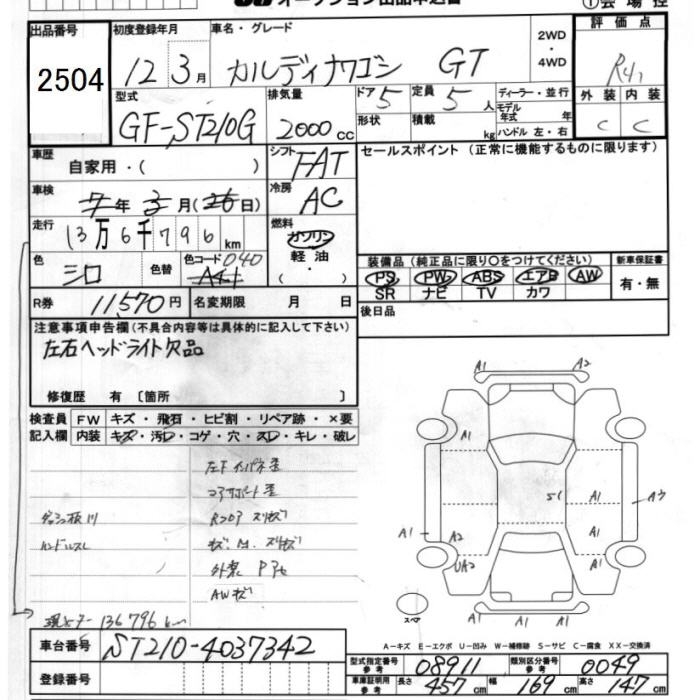 オークション出品申込書
①会場控
出品番号 初度登録年月 車名・グレード 2WD・4WD 評価点
2504 12 3月 カルディナワゴン GT R41
型式 排気量 ドア 5 定員 5人 ディーラー・並行 外装 内装
GF-ST210G 2000cc 形状 積載 kg モデル年式 年 ハンドル 左・右 C C
車歴 自家用・( ) シフト FAT セールスポイント (正常に機能するものに限ります)
車検 7年3月(26日) 冷房 AC
走行 13万6千796km 燃料 ガソリン
軽油・( )
色 シロ 色替 色コード 040 A41 装備品 (純正品に限り〇をつけてください) 新車保証書
PS PW ABS エアB AW 有・無
SR ナビ TV カワ
R券 11570円 名変期限 月 日 後日品
注意事項申告欄(不具合内容等は具体的に記入して下さい)
左右ヘッドライト欠品
修復歴 有 〔箇所 〕
検査員記入欄 FW キズ・飛石・ヒビ割・リペア跡・×要
内装 キズ・汚レ・コゲ・穴・スレ・キレ・破レ
左F インパネ歪
コアサポート歪
Rコア スリキズ
ハンドルスレ キズ、M、スリキズ
外装
AWキズ
現メーター 136796km
A1 A2
A1
S1 A1 A1 Aウ
A1 A2
UA2 A1
A1 A1
スペア
A-キズ E-エクボ U-凹み W-補修跡 S-サビ C-腐食 XX-交換済
車台番号 ST210-4037342
型式指定番号参考 08911 類別区分番号参考 0049
登録番号 車庫証明用参考 長さ 457cm 幅 169cm 高さ 147cm